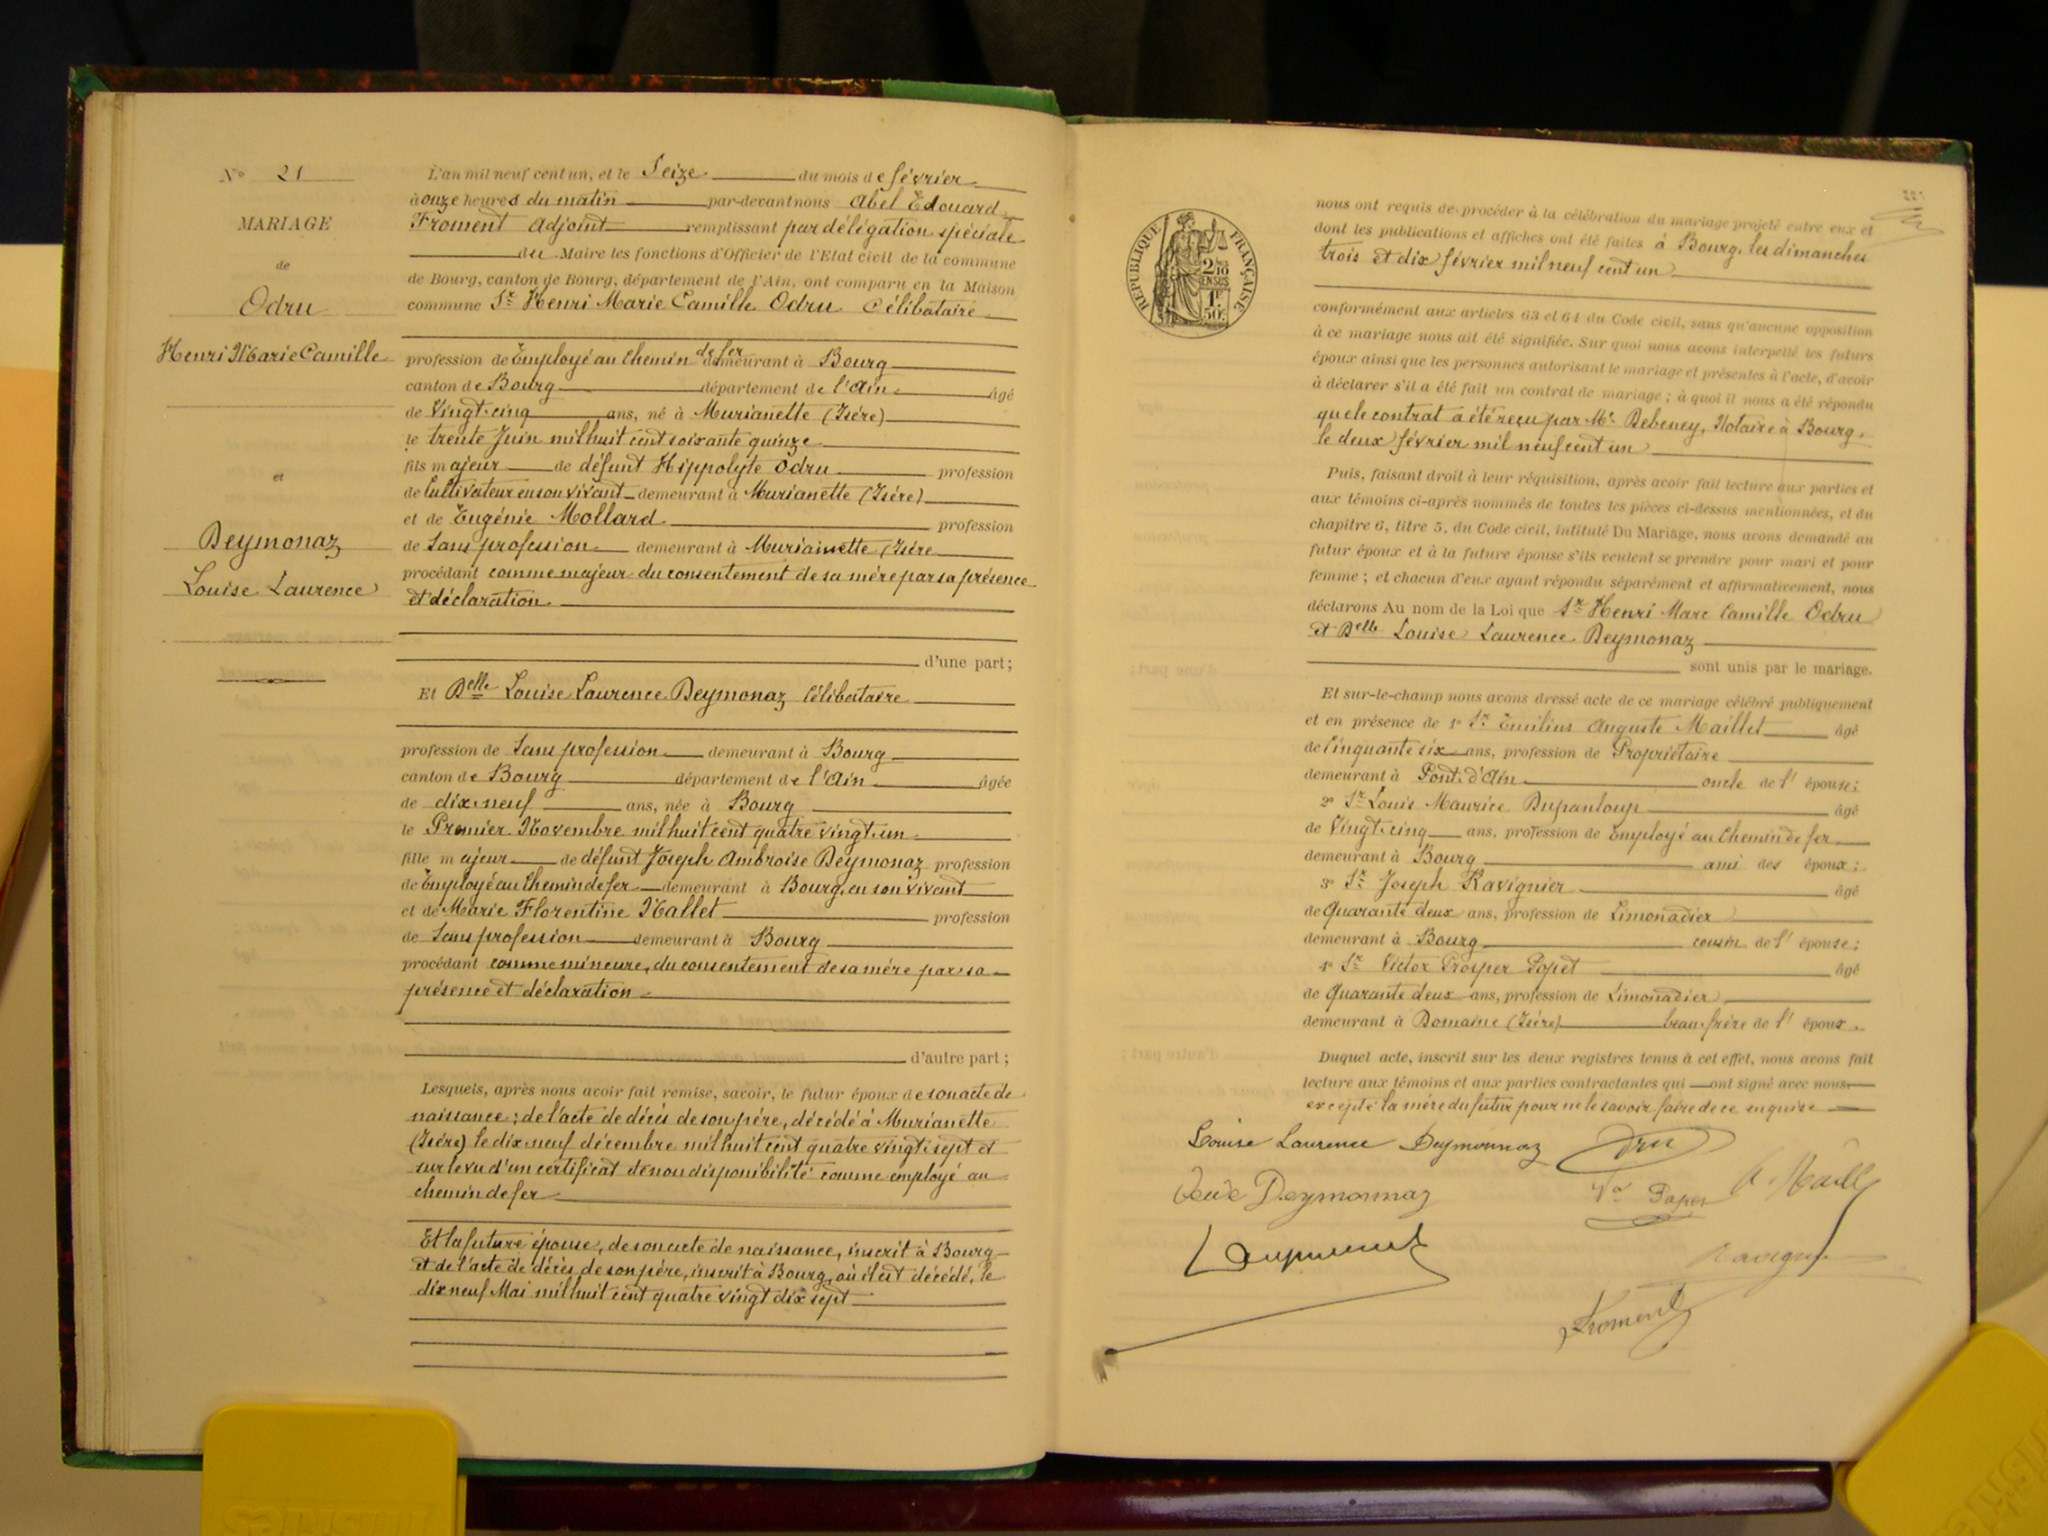 N° 21
MARIAGE
de
Odru
Henri Marie Camille
et
Deymonaz
Louise Laurence
L'an mil neuf cent un, et le Seize du mois de février
à onze heures du matin par-devant nous Abel Edouard
Froment Adjoint remplissant par délégation spéciale
du Maire les fonctions d'Officier de l'Etat civil de la commune
de Bourg, canton de Bourg, département de l'Ain, ont comparu en la Maison
commune Sr Henri Marie Camille Odru Célibataire
profession de Employé au Chemin de fer demeurant à Bourg
canton de Bourg département de l'Ain âgé
de Vingt-cinq ans, né à Murianette (Isére)
le trente Juin mil huit cent soixante quinze
fils majeur de défunt Hippolyte Odru profession
de Cultivateur en son vivant demeurant à Murianette (Isére)
et de Eugénie Mollard profession
de Sans profession demeurant à Muriainette (Isére
procédant comme majeur du consentement de sa mére par sa présence
et déclaration.
d'une part;
Et Delle Louise Laurence Deymonaz Célibataire
profession de Sans profession demeurant à Bourg
canton de Bourg département de l'Ain âgée
de dix-neuf ans, née à Bourg
le Premier Novembre mil huit cent quatre vingt-un
fille majeur de défunt Joseph Ambroise Deymonaz profession
de Employé au Chemin de fer demeurant à Bourg, en son vivant
et de Marie Florentine Mallet profession
de Sans profession demeurant à Bourg
procédant comme mineure, du consentement de sa mére par sa
présence et déclaration
d'autre part;
Lesquels, après nous avoir fait remise, savoir, le futur époux de son acte de
naissance; de l'acte de décés de son pére, décédé à Murianette
(Isére) le dix-neuf décembre mil huit cent quatre vingt-sept et
sur le vu d'un certificat de non disponibilité comme employé au
chemin de fer
Et la future épouse, de son acte de naissance, inscrit à Bourg
et de l'acte de décés de son pére, inscrit à Bourg, où il est décédé, le
dix neuf Mai mil huit cent quatre vingt dix sept
RÉPUBLIQUE FRANÇAISE
2/10
EN SUS
1F
50c
nous ont requis de procéder à la célébration du mariage projeté entre eux et
dont les publications et affiches ont été faites à Bourg, les dimanches
trois et dix février mil neuf cent un
conformément aux articles 63 et 64 du Code civil, sans qu'aucune opposition
à ce mariage nous ait été signifiée. Sur quoi nous avons interpellé les futurs
époux ainsi que les personnes autorisant le mariage et présentes à l'acte, d'avoir
à déclarer s'il a été fait un contrat de mariage; à quoi il nous a été répondu
que le contrat a été reçu par Me Debeney, Notaire à Bourg,
le deux février mil neuf cent un
Puis, faisant droit à leur réquisition, après avoir fait lecture aux parties et
aux témoins ci-après nommés de toutes les pièces ci-dessus mentionnées, et du
chapitre 6, titre 5, du Code civil, intitulé Du Mariage, nous avons demandé au
futur époux et à la future épouse s'ils veulent se prendre pour mari et pour
femme; et chacun d'eux ayant répondu séparément et affirmativement, nous
déclarons Au nom de la Loi que Sr Henri Marc Camille Odru
et Delle Louise Laurence Deymonaz
sont unis par le mariage.
Et sur-le-champ nous avons dressé acte de ce mariage célébré publiquement
et en présence de 1° Sr Emilius Auguste Maillet âgé
de Cinquante six ans, profession de Propriétaire
demeurant à Pont-d'Ain oncle de l' épouse;
2° Sr Louis Maurice Dupanloup âgé
de Vingt-cinq ans, profession de Employé au Chemin de fer
demeurant à Bourg ami des époux;
3° Sr Joseph Ravignier âgé
de Quarante deux ans, profession de Limonadier
demeurant à Bourg cousin de l' épouse;
4° Sr Victor Prosper Popet âgé
de Quarante deux ans, profession de Limonadier
demeurant à Domaine (Isére) beau-frére de l' époux.
Duquel acte, inscrit sur les deux registres tenus à cet effet, nous avons fait
lecture aux témoins et aux parties contractantes qui ont signé avec nous
excepté la mére du futur pour ne le savoir faire de ce enquise
Louise Laurence Deymonnaz
Odru
Veuve Deymonnaz
Froment